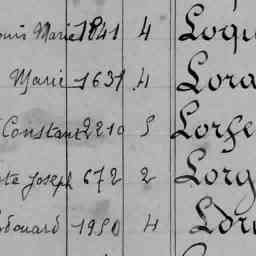 ouis Marie 1841 4 Loqu
Marie 1631 4 Lora
Constant 2210 5 Lorge
te Joseph 672 2 Lorg
douard 1950 4 Lori